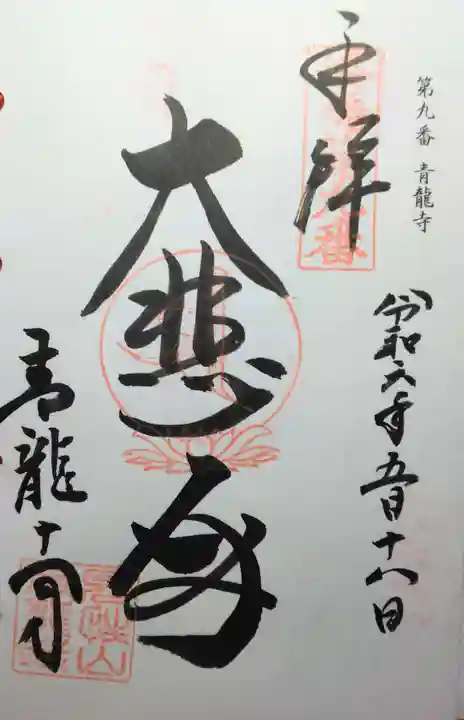 第九番 青龍寺
奉拝
令和六年五月十八日
大悲殿
青龍寺